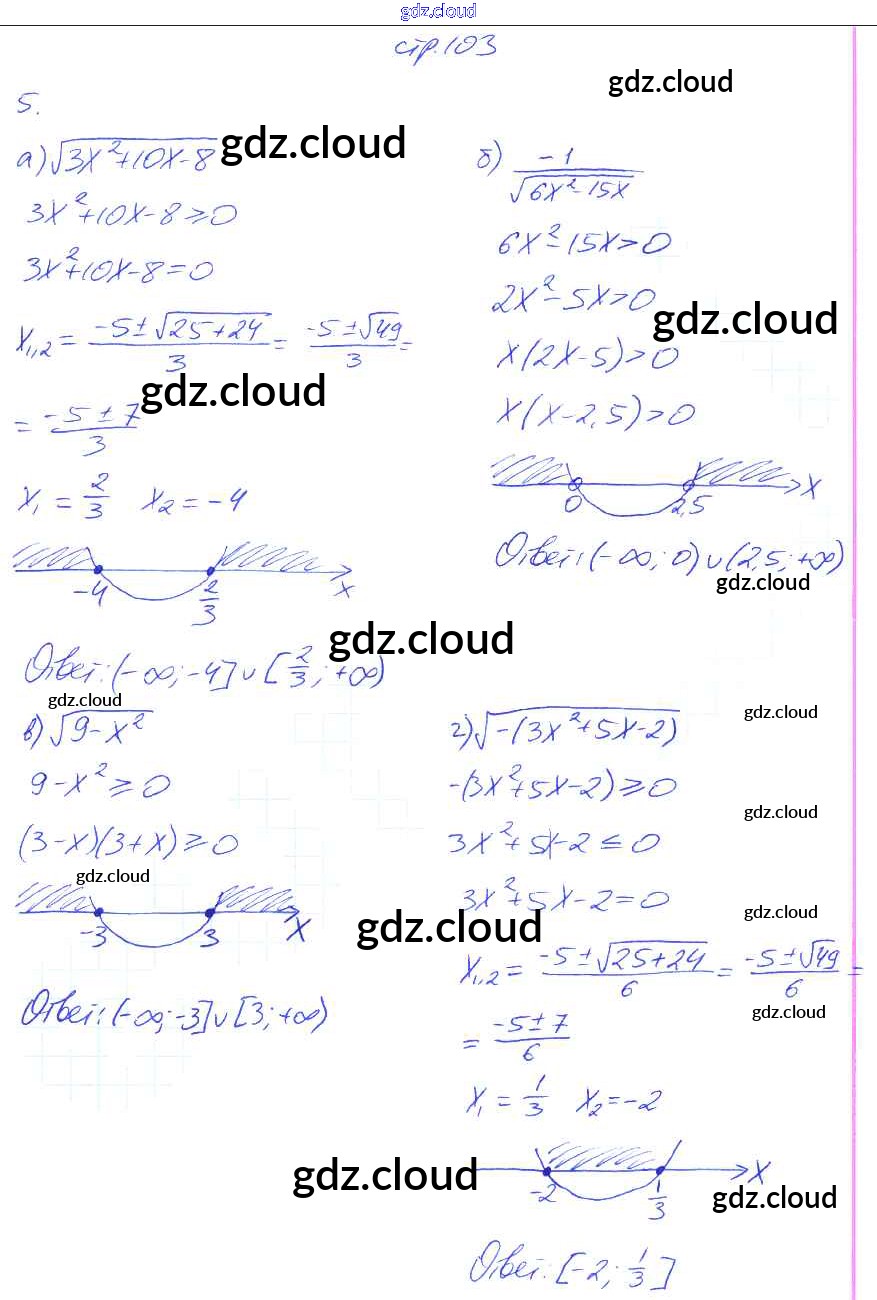 gdz.cloud
стр.103
gdz.cloud
5.
а) √(3x²+10x-8)
gdz.cloud
3x²+10x-8≥0
3x²+10x-8=0
x₁,₂ = (-5±√(25+24))/3 = (-5±√49)/3 =
gdz.cloud
= (-5±7)/3
x₁ = 2/3 x₂ = -4
-4 2/3 x
gdz.cloud
Ответ: (-∞; -4] ∪ [2/3; +∞)
б) -1/√(6x²-15x)
6x²-15x>0
2x²-5x>0
gdz.cloud
x(2x-5)>0
x(x-2,5)>0
0 2,5 x
Ответ: (-∞; 0) ∪ (2,5; +∞)
gdz.cloud
gdz.cloud
в) √(9-x²)
9-x²≥0
(3-x)(3+x)≥0
gdz.cloud
-3 3 x
gdz.cloud
Ответ: (-∞; -3] ∪ [3; +∞)
gdz.cloud
г) √(-(3x²+5x-2))
-(3x²+5x-2)≥0
gdz.cloud
3x²+5x-2≤0
3x²+5x-2=0
gdz.cloud
x₁,₂ = (-5±√(25+24))/6 = (-5±√49)/6 =
gdz.cloud
= (-5±7)/6
x₁ = 1/3 x₂ = -2
gdz.cloud
-2 1/3 x
gdz.cloud
Ответ: [-2; 1/3]